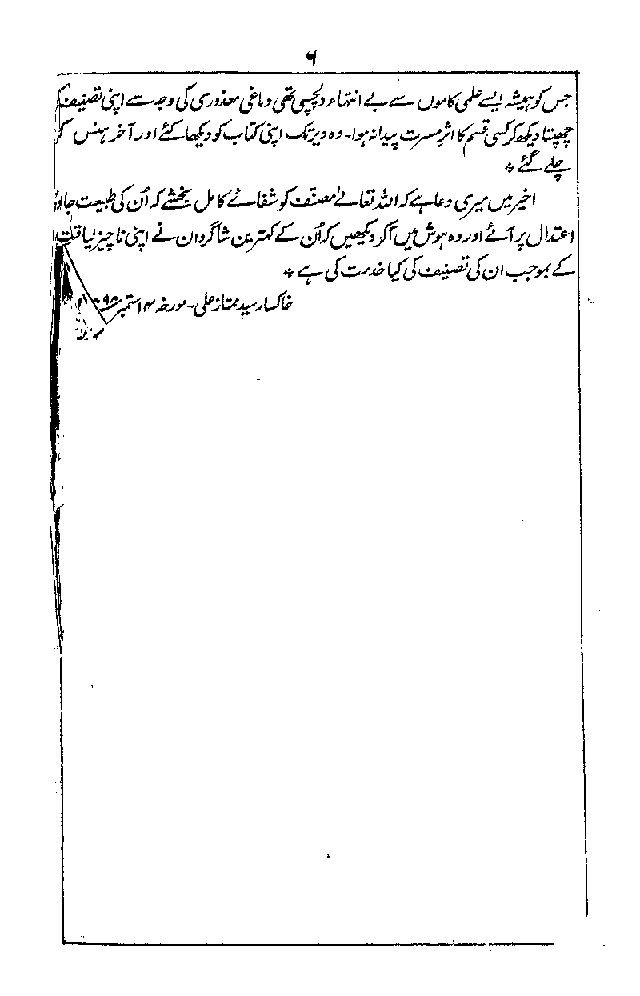 ۶
جس کو ہمیشہ ایسے علمی کاموں سے بے انتہاء دلچسپی تھی دماغی معذوری کی وجہ سے اپنی تصنیف کو
چھپتا دیکھ کر کسی قسم کا اثر مسرت پیدا نہ ہوا۔ وہ دیر تک اپنی کتاب کو دیکھا کئے اور آخر ہنس کر
چلے گئے *
اخیر میں میری دعا ہے کہ اللہ تعالےٰ مصنف کو شفائے کامل بخشے کہ اُن کی طبیعت جادۂ
اعتدال پر آئے اور وہ ہوش میں آکر دیکھیں کہ اُن کے کمترین شاگردان نے اپنی ناچیز لیاقت
کے بموجب ان کی تصنیف کی کیا خدمت کی ہے *
خاکسار سید ممتاز علی۔ مورخہ ۱۴ ستمبر